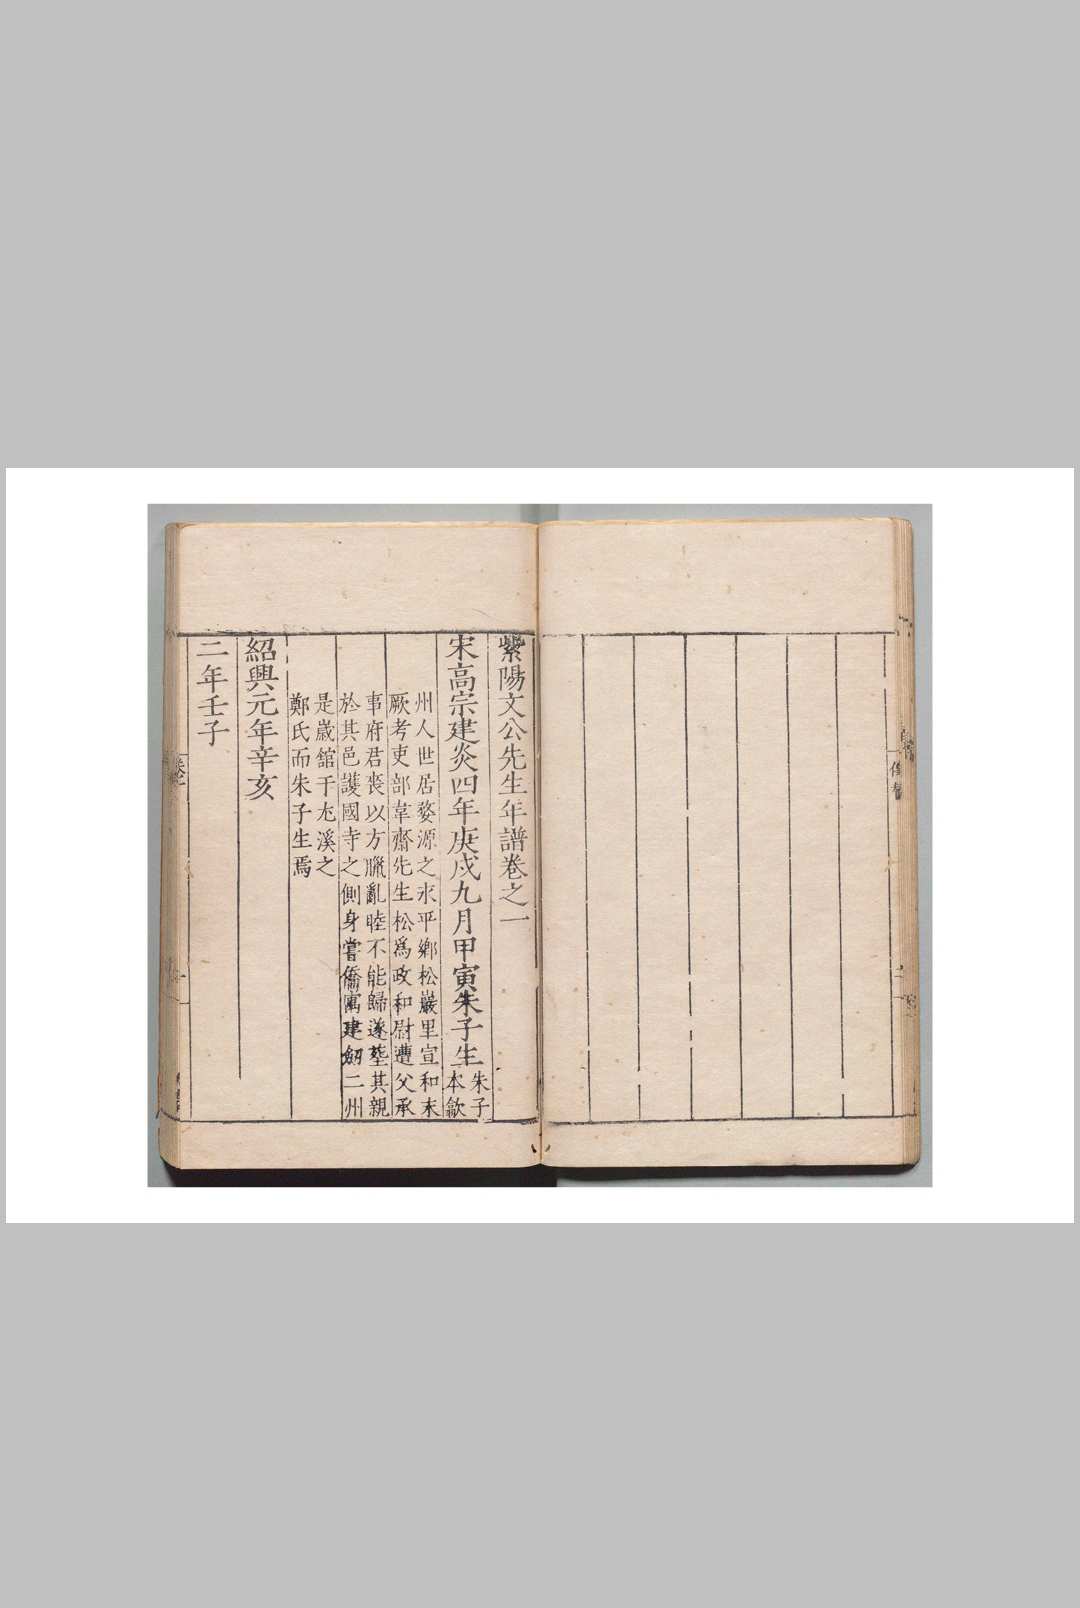 紫陽文公先生年譜卷之一
宋高宗建炎四年庚戌九月甲寅朱子生朱子
本歙
州人世居婺源之永平鄉松巖里宣和末
厥考吏部韋齋先生松爲政和尉遭父承
事府君喪以方臘亂睦不能歸遂塟其親
於其邑護國寺之側身嘗僑寓建劒二州
是歲館于尤溪之
鄭氏而朱子生焉
紹興元年辛亥
二年壬子